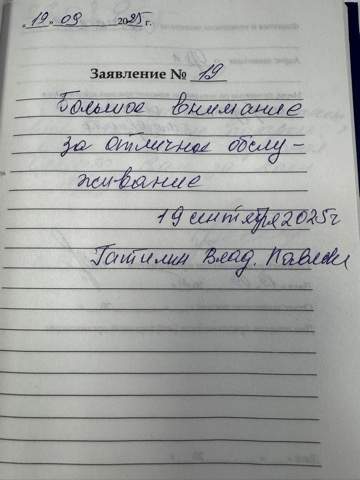 „19" 09 2025 г.
Заявление № 19
Большое внимание
за отличное обслу-
живание
19 сентября 2025 г
Гатилин Влад. Павлов